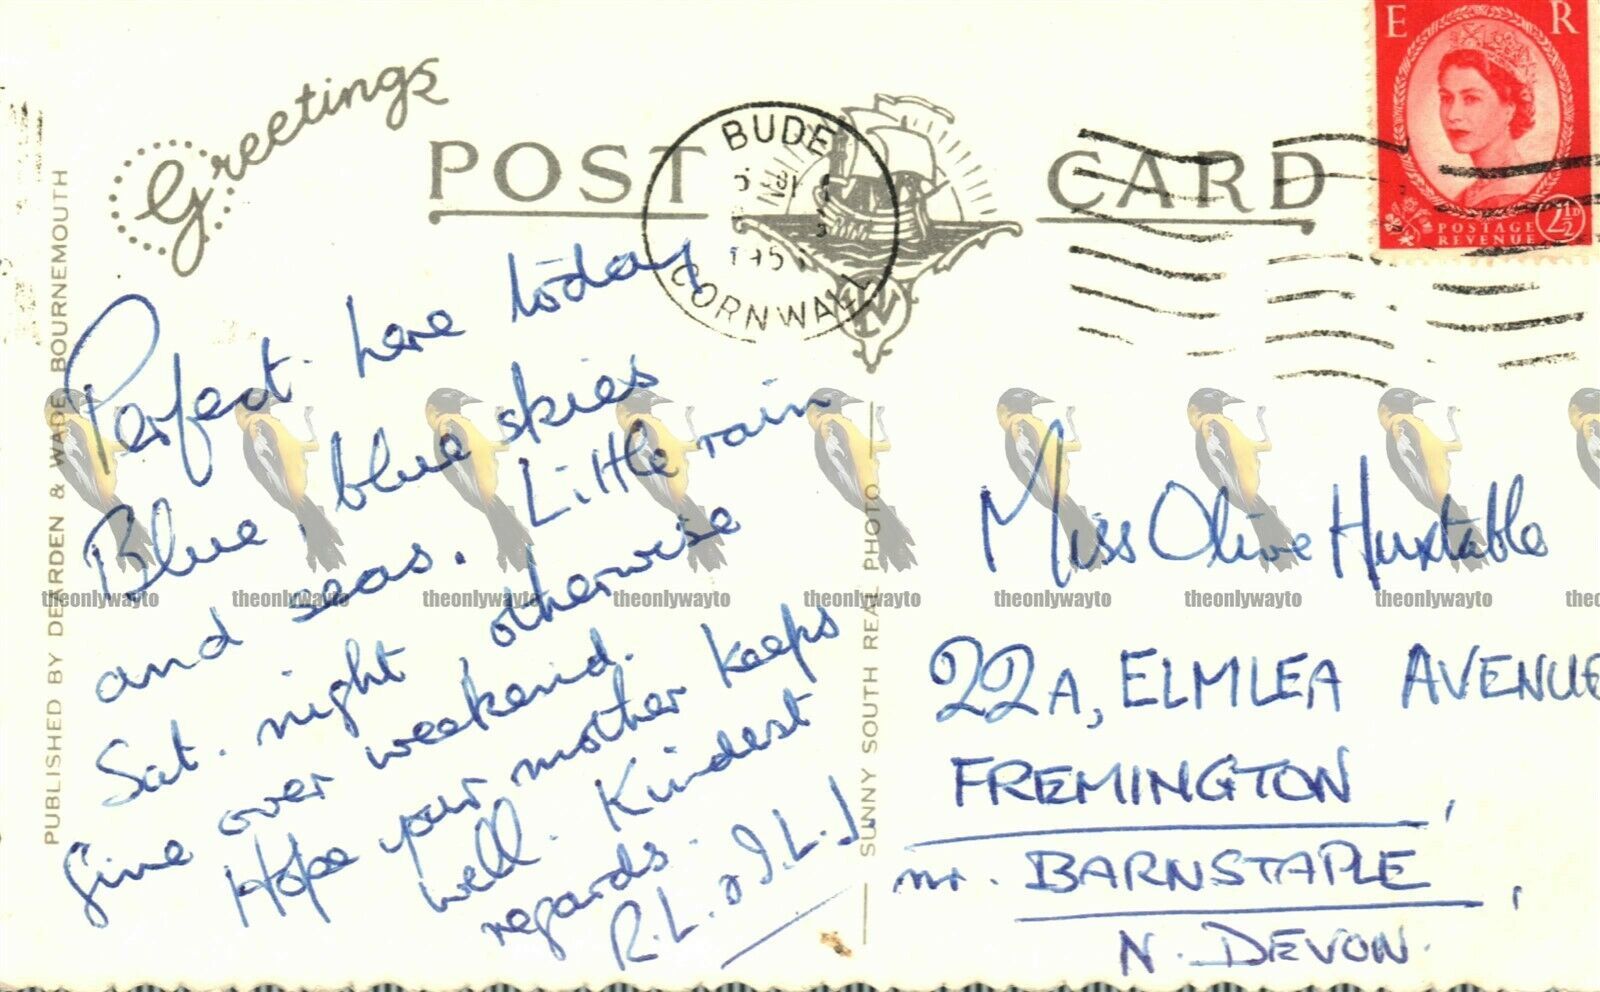 Greetings
POST CARD
BUDE
CORNWALL
E R
POSTAGE
REVENUE
2½D
PUBLISHED BY DEARDEN & WADE BOURNEMOUTH
Perfect here today
Blue, blue skies
and seas. Little rain
Sat. night otherwise
fine over weekend.
Hope your mother keeps
well. Kindest
regards.
R.L. & I.L.J.
SUNNY SOUTH REAL PHOTO
Miss Olive Huxtable
22A, ELMLEA AVENUE
FREMINGTON,
nr. BARNSTAPLE,
N. DEVON.
theonlywayto theonlywayto theonlywayto theonlywayto theonlywayto theonlywayto theonlywayto theonlywayto theo